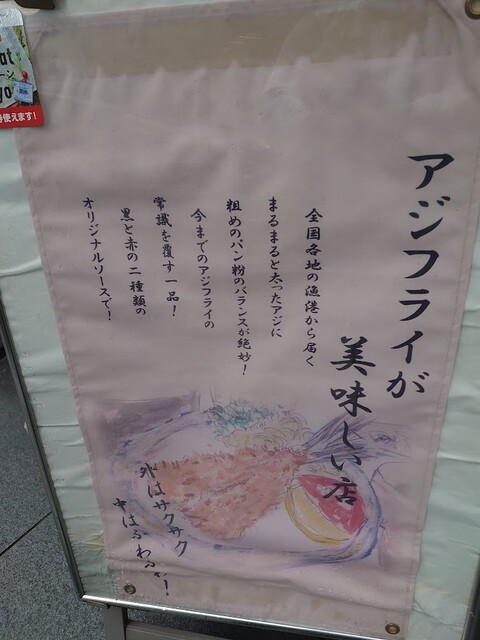 アジフライが
美味しい店
全国各地の漁港から届く
まるまると太ったアジに
粗めのパン粉のバランスが絶妙！
今までのアジフライの
常識を覆す一品！
黒と赤の二種類の
オリジナルソースで！
外はサクサク
中はふわふわ！
使えます！